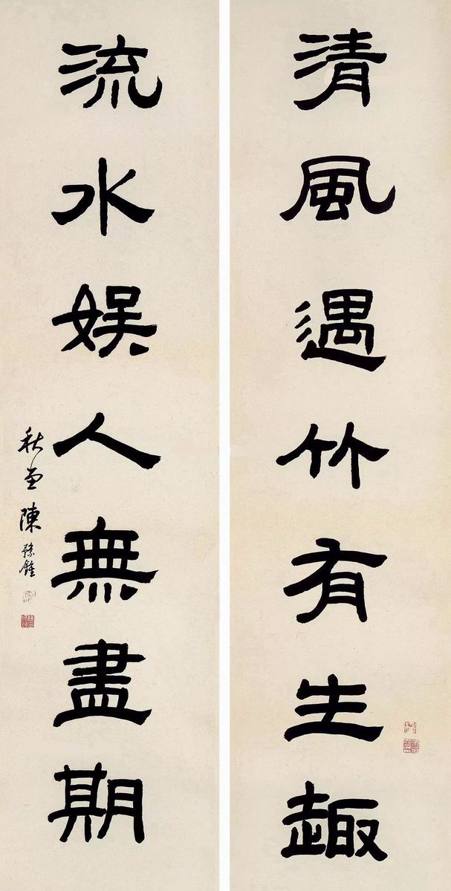 清風遇竹有生趣
流水娱人無盡期
秋並陳